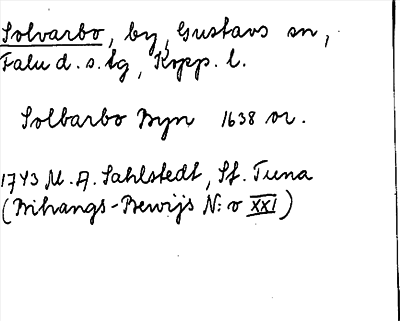 Solvarbo, by, Gustavs sn,
Falu d.s. tg, Kopp. l.
Solbarbo Byn 1638 or.
1743 M. A. Sahlstedt, St. Tuna
(Bihangs-Bewijs N:o XXI)